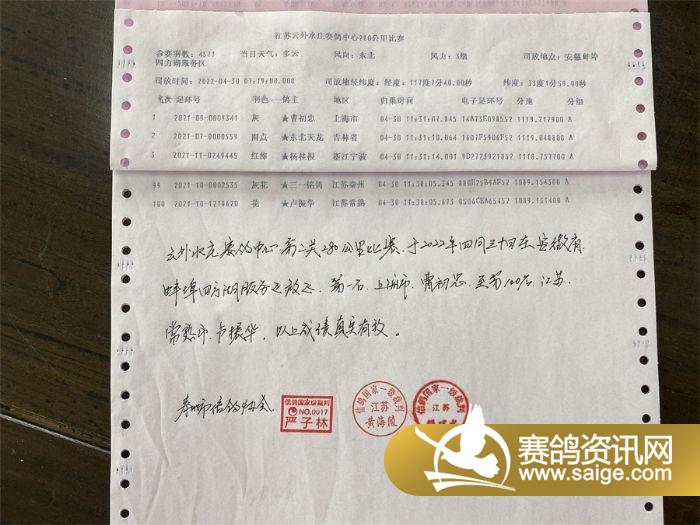 江苏云外水庄赛鸽中心280公里比赛
参赛羽数：4571 当日天气：多云 风向：东北 风力：3级 司放地点：安徽蚌埠
四方湖服务区
司放时间：2022-04-30 07:19:00.000 司放地经纬度：经度：117度7分40.00秒 纬度：33度1分59.00秒
名次 足环号 羽色 鸽主 地区 归巢时间 电子足环号 分速 分组
1 2021-09-0009341 灰 ★曹初忠 上海市 04-30 11:31:07.045 14A73E098552 1119.212900 A
2 2021-07-0000559 雨点 ★东北天龙 吉林省 04-30 1119.048800 A
3 2021-11-0249445 红绛 ★杨桂根 浙江宁波 04-30 11:31:14.001 9D2723921852 1118.757700 A
99 2021-10-0002535 灰花 ★三一铭鸽 江苏泰州 04-30 11:38:05.345 1089.154300 A
100 2021-10-1218620 花 ★卢振华 江苏常熟 04-30 11:38:05.673 0506CEA65452 A
云外水庄赛鸽中心第二关280公里比赛，于2022年四月三十日在安徽省
蚌埠四方湖服务区放飞，第一名，上海市，曹初忠，至第100名，江苏
常熟市，卢振华，以上成绩真实有效。
泰州市信鸽协会
信鸽国家级裁判
NO.0017
严子林
信鸽国家一级裁判
江苏
黄海陵
信鸽国家一级裁判
江苏
赛鸽资讯网
www.saige.com